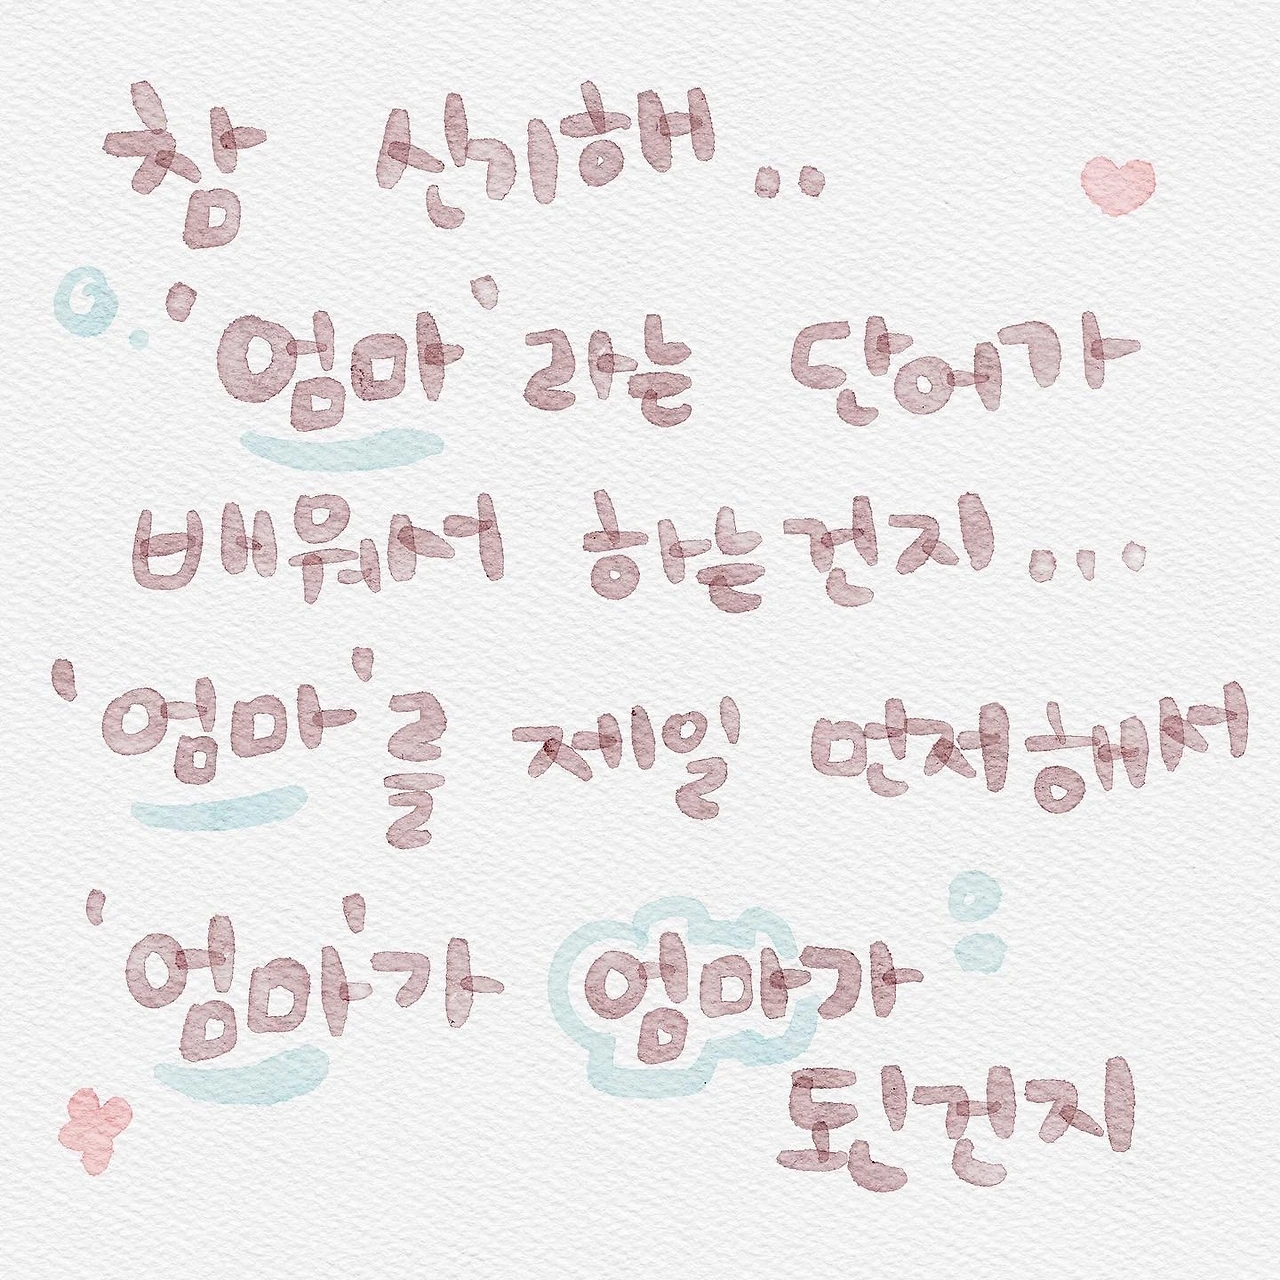 참 신기해..
'엄마'라는 단어가
배워서 하는건지...
'엄마'를 제일 먼저해서
'엄마'가 엄마가
된건지